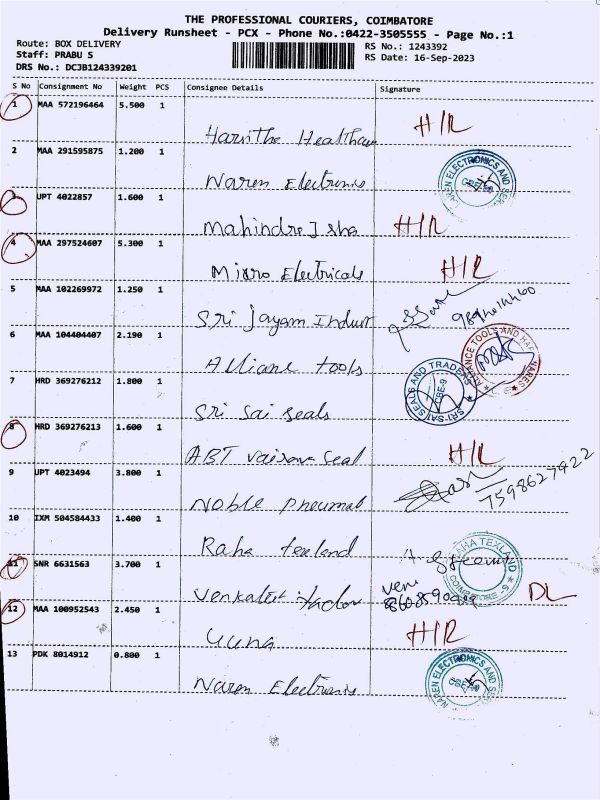 THE PROFESSIONAL COURIERS, COIMBATORE
Delivery Runsheet - PCX - Phone No.:0422-3505555 - Page No.:1
Route: BOX DELIVERY
RS No.: 1243392
Staff: PRABU S
RS Date: 16-Sep-2023
DRS No.: DCJB124339201
S No Consignment No Weight PCS Consignee Details Signature
1 MAA 572196464 5.500 1
Harsitha Healthcare H/R
2 MAA 291595875 1.200 1
Naren Electronics NAREN ELECTRONICS AND SER
3 UPT 4022857 1.600 1
Mahindre Isha H/R
4 MAA 297524607 5.300 1
Micro Electricals H/R
5 MAA 102269972 1.250 1
Sri Jayam Indust
6 MAA 104404407 2.190 1
Alliane tools RELIANCE TOOLS AND HARDWARES
7 HRD 369276212 1.800 1
Sri Sai Seals SRI SAI SEALS AND TRADERS CBE-9
8 HRD 369276213 1.600 1
ABT Vairava Seal H/R
9 UPT 4023494 3.800 1
Noble Pneumat 7598627922
10 IXM 504584433 1.400 1
Raha texland RAHA TEXLAND COIMBATORE - 9
11 SNR 6631563 3.700 1
Venkatest Veni DL
12 MAA 100952543 2.450 1
H/R
13 PDK 8014912 0.800 1
Naren Electronics NAREN ELECTRONICS AND SER